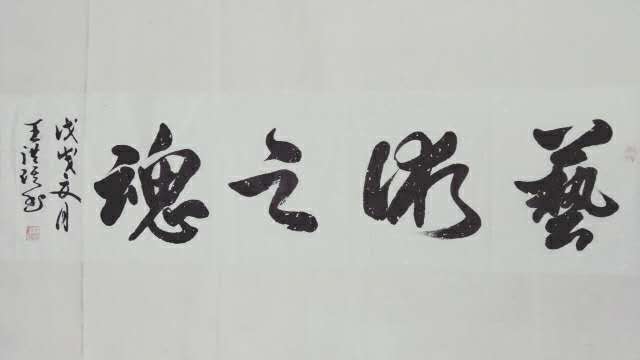 藝術之魂
戊戌夏月